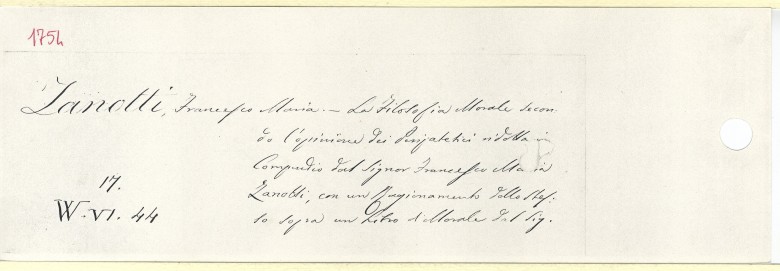 1754
Zanotti, Francesco Maria. - La Filosofia Morale secon-
do l'opinione dei Peripatetici ridotta in
Compendio dal Signor Francesco Maria
Zanotti, con un Ragionamento dello stes-
so sopra un Libro di Morale del Sig.
17.
W. VI. 44